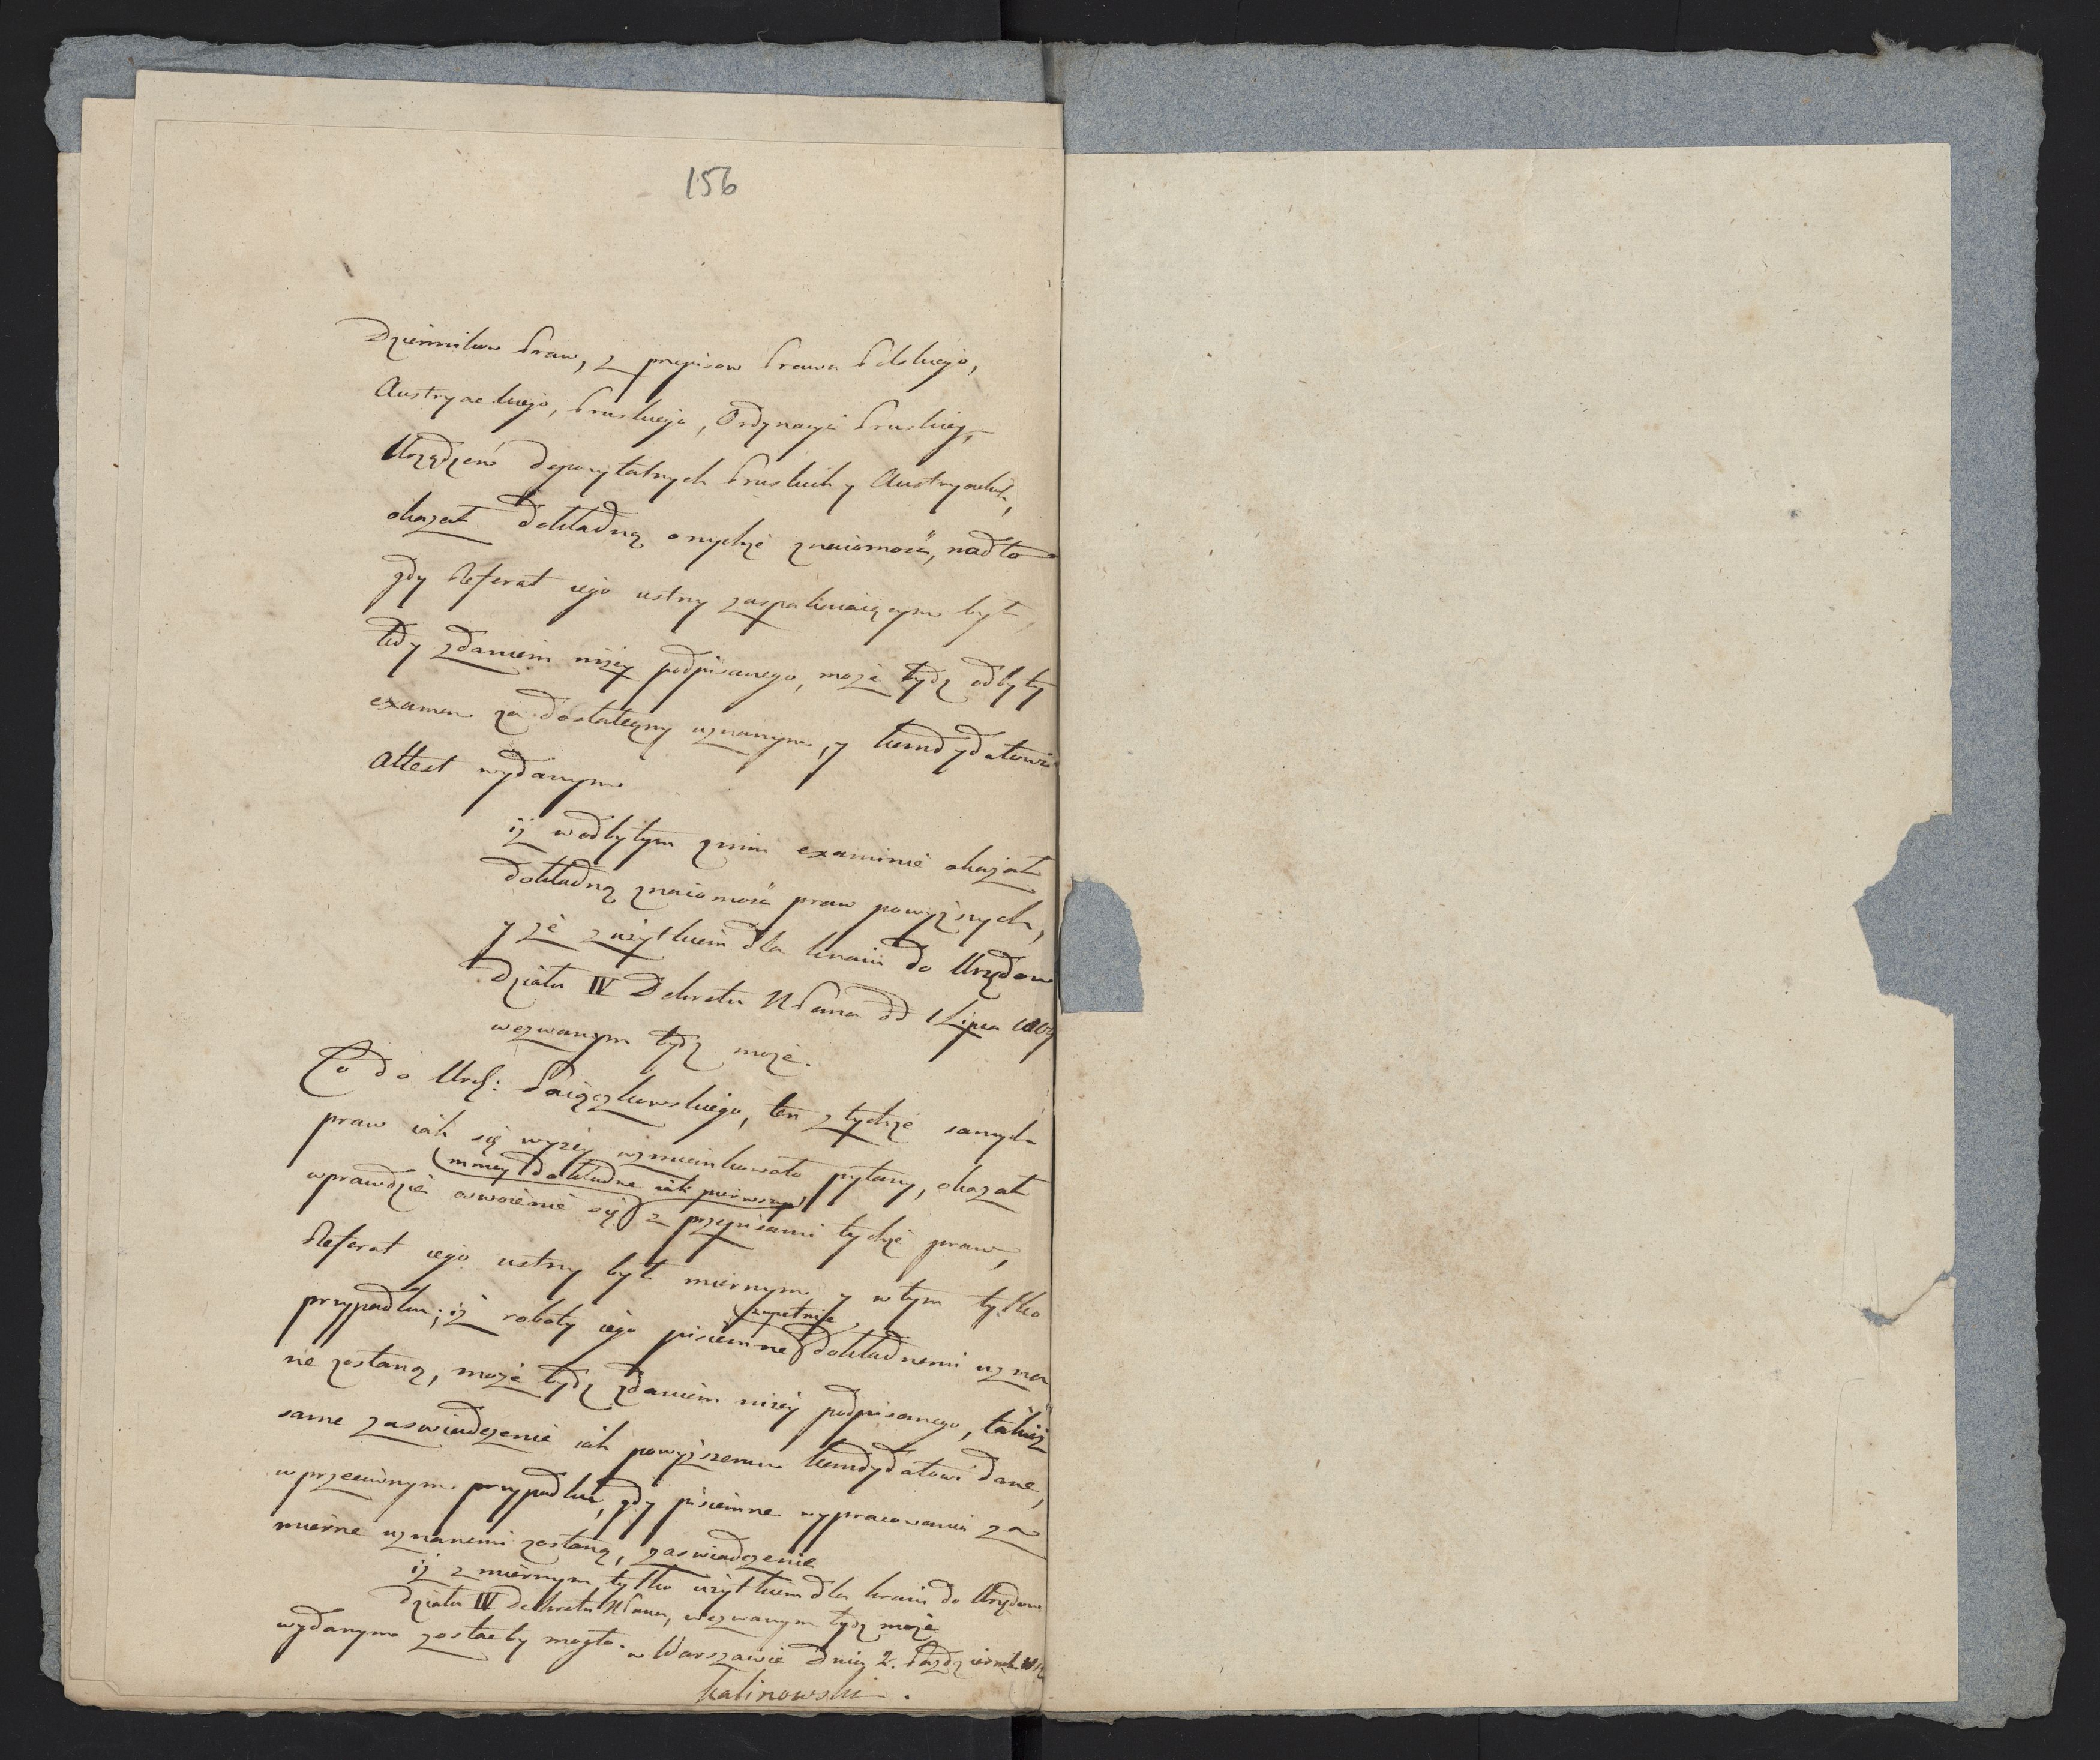 156
Dziennikow Praw, z przepisow Prawa Polskiego,
Austryackiego, Pruskiego, Ordynacyi Pruskiey,
Urządzeń depozytalnych Pruskich y Austryackich,
okazał dokładną onychże znaiomość, nadto
gdy Referat iego ustny zaspakaiaiącym był,
tedy zdaniem niżey podpisanego, może bydź odbyty
examen za dostateczny uznanym, y kandydatowi
attest wydanym
iż w odbytym z nim examinie okazał
dokładną znaiomość praw powyższych,
y że z użytkiem dla kraiu do Urzędow
Działu IV Dekretu N Pana dd 1 Lipca 1809
wezwanym bydź może.
Co do Urod: Paiączkowskiego, ten z tychże samych
praw iak się wyżey wzmiankowało pytany, okazał
mniey dokładne iak pierwszy
wprawdzie oswoienie się z przepisami tychże praw,
Referat iego ustny był miernym y w tym tylko
przypadku, iż roboty iego pisiemne
zupełnie
dokładnemi uzna
ne zostaną, może bydź zdaniem niżey podpisanego, takież
same zaswiadczenie iak powyższemu kandydatowi dane,
w przeciwnym przypadku, gdy pisiemne wypracowania za
mierne uznanemi zostaną, zaswiadczenie
iż z miernym tylko użytkiem dla kraiu do Urzędow
działu IV Dekretu N Pana, wezwanym bydź może
wydanym zostać by mogło. w Warszawie dnia 2. Październ.
Kalinowski.